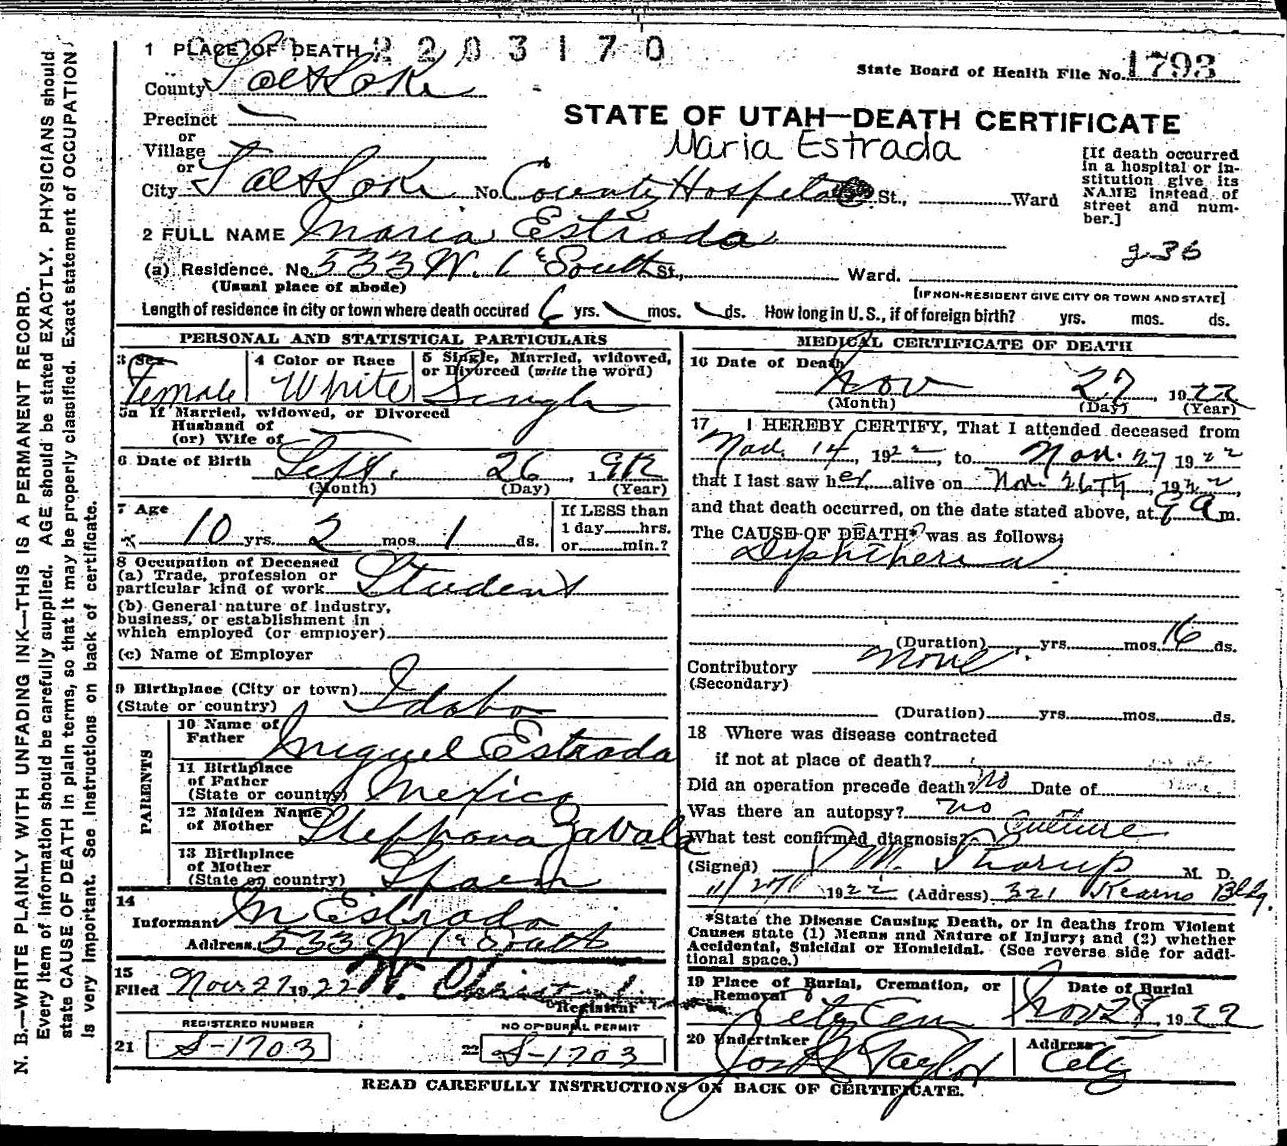 N. B.—WRITE PLAINLY WITH UNFADING INK—THIS IS A PERMANENT RECORD.
Every item of information should be carefully supplied. AGE should be stated EXACTLY. PHYSICIANS should
state CAUSE OF DEATH in plain terms, so that it may be properly classified. Exact statement of OCCUPATION
is very important. See instructions on back of certificate.
1 PLACE OF DEATH 2203170
State Board of Health File No. 1793
County Salt Lake
STATE OF UTAH—DEATH CERTIFICATE
Precinct
or
Village
or
Maria Estrada
[If death occurred
in a hospital or in-
stitution give its
NAME instead of
street and num-
ber.]
City Salt Lake No. County Hospital St., Ward
2 FULL NAME Maria Estrada
(a) Residence. No. 533 W. 1st South St., Ward.
(Usual place of abode)
[IF NON-RESIDENT GIVE CITY OR TOWN AND STATE]
Length of residence in city or town where death occured 6 yrs. mos. ds. How long in U.S., if of foreign birth? yrs. mos. ds.
PERSONAL AND STATISTICAL PARTICULARS
3 Sex Female
4 Color or Race White
5 Single, Married, widowed,
or Divorced (write the word)
Single
5a If Married, widowed, or Divorced
Husband of
(or) Wife of
6 Date of Birth Sept. 26 1912
(Month) (Day) (Year)
7 Age 10 yrs. 2 mos. 1 ds.
If LESS than
1 day hrs.
or min.?
8 Occupation of Deceased
(a) Trade, profession or
particular kind of work Student
(b) General nature of industry,
business, or establishment in
which employed (or employer)
(c) Name of Employer
9 Birthplace (City or town)
(State or country) Idaho
PARENTS
10 Name of
Father Miguel Estrada
11 Birthplace
of Father
(State or country) Mexico
12 Maiden Name
of Mother Stephona Zavala
13 Birthplace
of Mother
(State or country) Spain
14
Informant M Estrada
Address 533 W 1st South
15
Filed Nov 27 1922 W. Christ
Registrar
REGISTERED NUMBER
21 S-1703
NO OF BURIAL PERMIT
22 S-1703
MEDICAL CERTIFICATE OF DEATH
16 Date of Death Nov 27 1922
(Month) (Day) (Year)
17 I HEREBY CERTIFY, That I attended deceased from
Nov. 14, 1922, to Nov. 27 1922
that I last saw her alive on Nov. 26th, 1922,
and that death occurred, on the date stated above, at 9 a m.
The CAUSE OF DEATH* was as follows:
Diphtheria
(Duration) yrs. mos. 16 ds.
Contributory None
(Secondary)
(Duration) yrs. mos. ds.
18 Where was disease contracted
if not at place of death?
Did an operation precede death? No Date of
Was there an autopsy? no
What test confirmed diagnosis? Culture
(Signed) M. Thorup M. D.
11/27/ 1922 (Address) 321 Kearns Bldg.
*State the Disease Causing Death, or in deaths from Violent
Causes state (1) Means and Nature of Injury; and (2) whether
Accidental, Suicidal or Homicidal. (See reverse side for addi-
tional space.)
19 Place of Burial, Cremation, or
Removal City Cem
Date of Burial
Nov 28 1922
20 Undertaker
Jos Taylor
Address
City
READ CAREFULLY INSTRUCTIONS ON BACK OF CERTIFICATE.